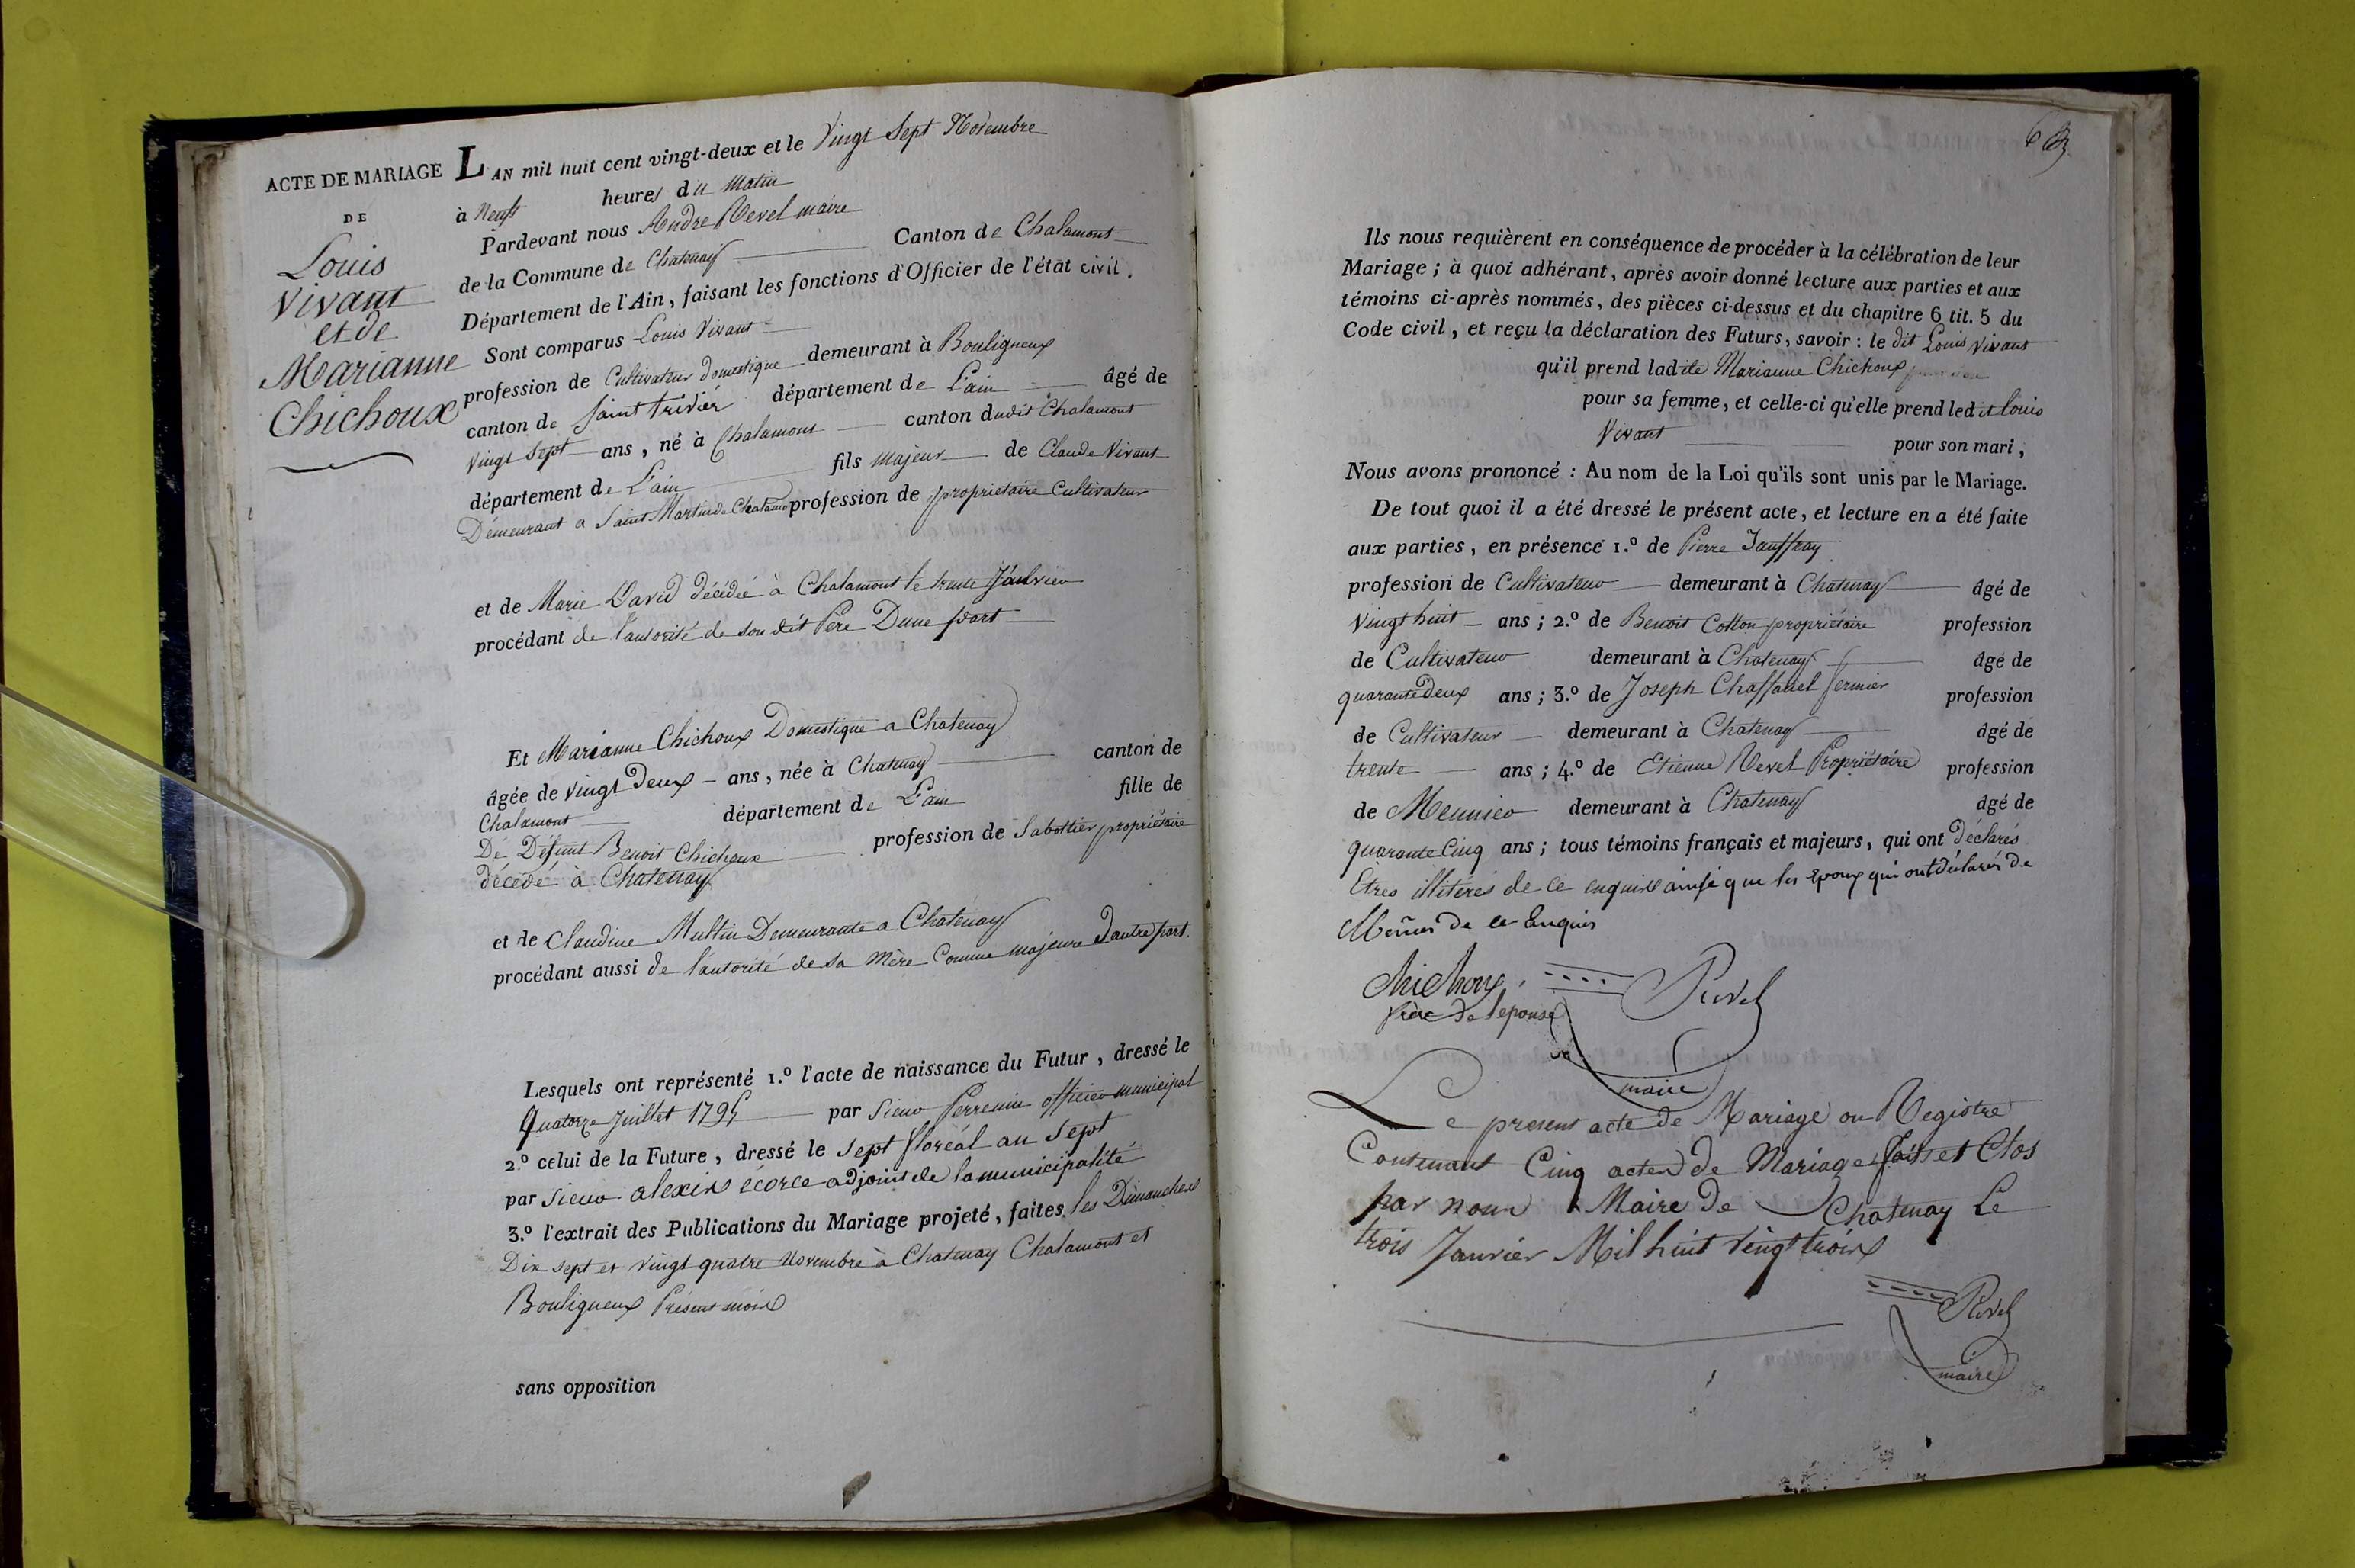 ACTE DE MARIAGE
DE
Louis
Vivant
et de
Marianne
Chichoux
LAN mil huit cent vingt-deux et le Vingt Sept Novembre
à Neuf heures du Matin
Pardevant nous Andre Revel maire
de la Commune de Chatenay Canton de Chalamont
Département de l'Ain, faisant les fonctions d'Officier de l'état civil.
Sont comparus Louis Vivant
profession de Cultivateur domestique demeurant à Bouligneux
canton de Saint trivier département de L'ain âgé de
Vingt Sept ans, né à Chalamont canton dudit Chalamont
département de L'ain fils majeur de Claude Vivant
Demeurant a Saint Martin de Chalamo profession de proprietaire Cultivateur
et de Marie David décédée à Chalamont le trente Janvier
procédant de l'autorité de son dit Père Dune part
Et Marianne Chichoux Domestique a Chatenay
âgée de vingt Deux ans, née à Chatenay canton de
Chalamont département de L'ain fille de
De Défunt Benoit Chichoux profession de Sabottier propriétaire
décédé à Chatenay
et de Claudine Multin Demeurante a Chatenay
procédant aussi de l'autorité de sa Mère Comme majeure Dautre part.
Lesquels ont représenté 1.º l'acte de naissance du Futur, dressé le
Quatorze Juillet 1795 par Sieur Perrenin officier municipal
2.º celui de la Future, dressé le Sept floréal an Sept
par Sieur alexis écorce adjoint de la municipalité
3.º l'extrait des Publications du Mariage projeté, faites les Dimanches
Dix sept et vingt quatre Novembre à Chatenay Chalamont et
Bouligneux Présent mois
sans opposition
Ils nous requièrent en conséquence de procéder à la célébration de leur
Mariage; à quoi adhérant, après avoir donné lecture aux parties et aux
témoins ci-après nommés, des pièces ci-dessus et du chapitre 6 tit. 5 du
Code civil, et reçu la déclaration des Futurs, savoir: le dit Louis Vivant
qu'il prend ladite Marianne Chichoux
pour sa femme, et celle-ci qu'elle prend ledit Louis
Vivant pour son mari,
Nous avons prononcé: Au nom de la Loi qu'ils sont unis par le Mariage.
De tout quoi il a été dressé le présent acte, et lecture en a été faite
aux parties, en présence 1.º de Pierre Jauffray
profession de Cultivateur demeurant à Chatenay âgé de
Vingt huit ans; 2.º de Benoit Cotton propriétaire profession
de Cultivateur demeurant à Chatenay âgé de
quarante Deux ans; 3.º de Joseph Chaffanel fermier profession
de Cultivateur demeurant à Chatenay âgé de
trente ans; 4.º de Etienne Revel Propriétaire profession
de Meunier demeurant à Chatenay âgé de
quarante Cinq ans; tous témoins français et majeurs, qui ont déclarés
Etres illitérés de ce enquis ainsi que les Epoux qui ont déclarés de
Mêmes de ce Enquis
Chichoux
frère de l'epouse
Revel
maire
Le present acte de Mariage ou Registre
Contenant Cinq actes de Mariage fait et Clos
par nous Maire de Chatenay Le
trois Janvier Mil huit vingt trois
Revel
maire